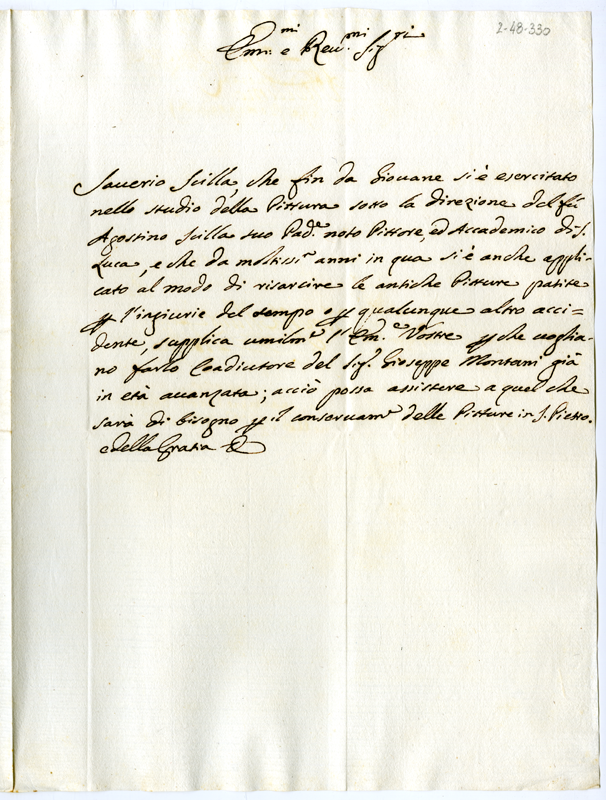 2-48-330
Em.mi e Rev.mi Sig.ri
Saverio Scilla, che fin da Giovane si è esercitato
nello studio della Pittura sotto la direzione del fù
Agostino Scilla suo Pad.e noto Pittore, ed Accademico di S.
Luca, e che da moltiss.i anni in qua si è anche appli-
cato al modo di risarcire le antiche Pitture patite
p l'ingiurie del tempo o p qualunque altro acci-
dente, supplica umilm.e l'Em.e Vostre p che voglia-
no farlo Coadiutore del Sig.r Gioseppe Montani già
in età avanzata; acciò possa assistere a quel che
sarà di bisogno p il conservam.o delle Pitture in S. Pietro.
e della Gratia &